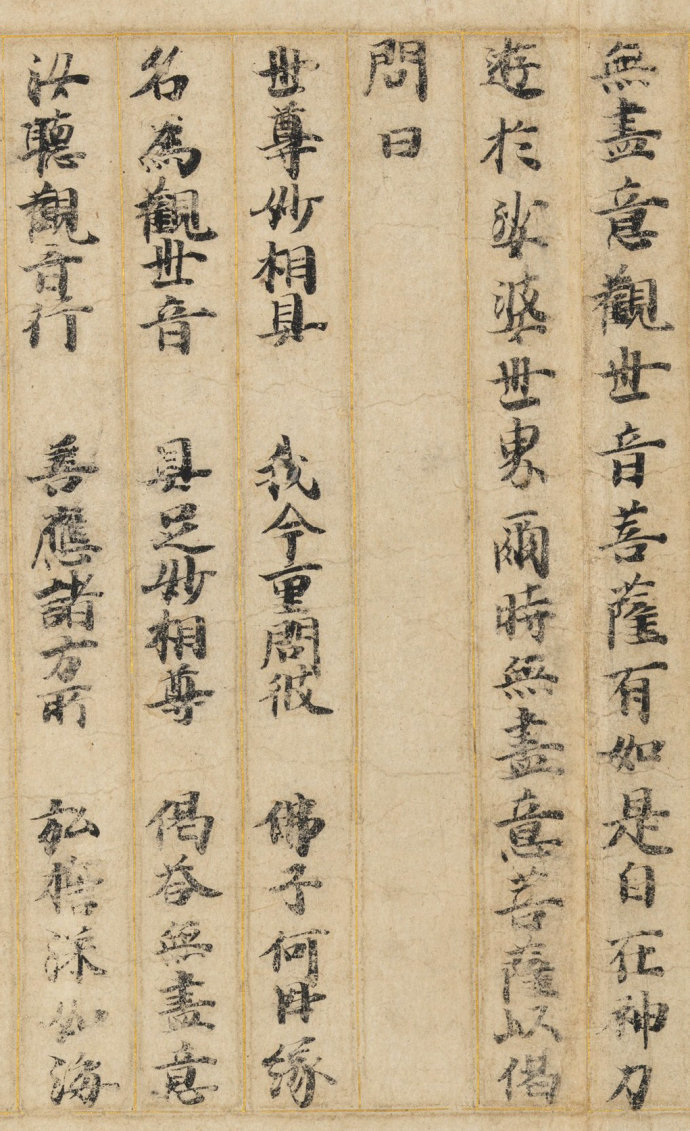 無盡意觀世音菩薩有如是自在神力
遊於娑婆世界爾時無盡意菩薩以偈
問曰
世尊妙相具　我今重問彼　佛子何因緣
名為觀世音　具足妙相尊　偈答無盡意
汝聽觀音行　善應諸方所　弘誓深如海